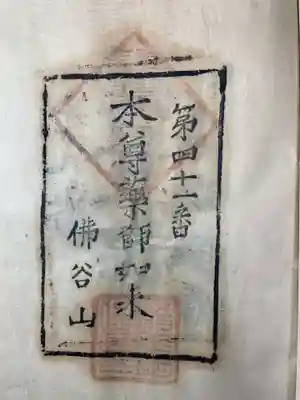 第四十一番
本尊薬師如来
佛谷山